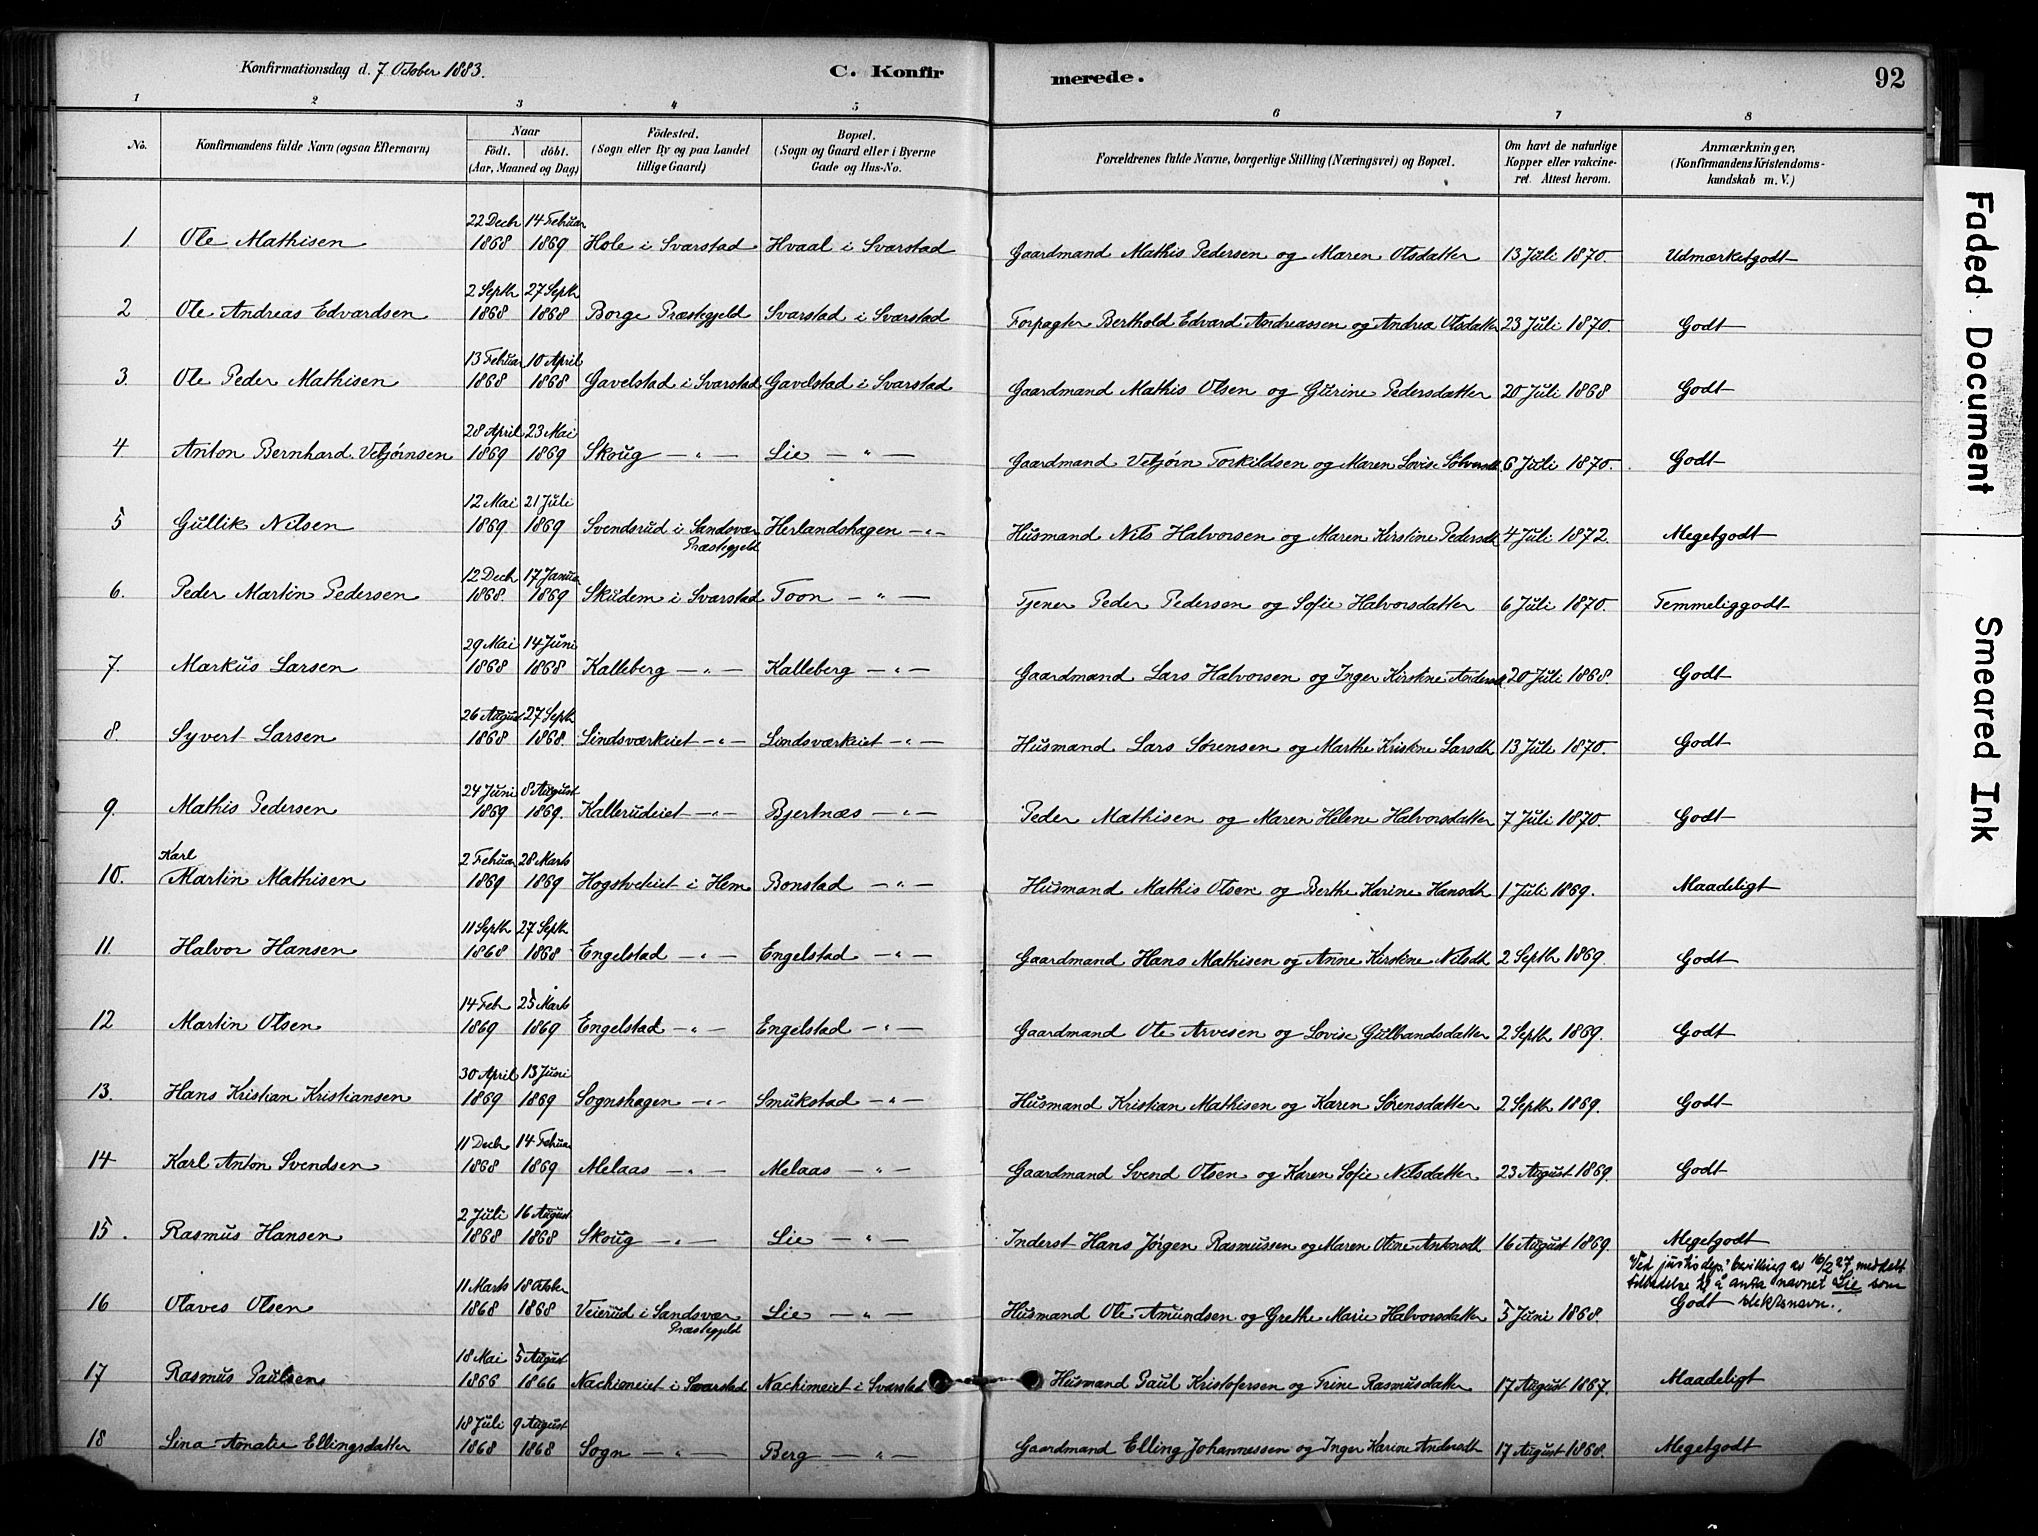 Konfirmationsdag d. 7 October 1883.
C. Konfirmerede.
92
1 2 3 4 5 6 7 8
No.
Konfirmandens fulde Navn (ogsaa Efternavn)
Naar
Födt. döbt.
(Aar, Maaned og Dag)
Födested.
(Sogn eller By og paa Landet
tillige Gaard)
Bopæl.
(Sogn og Gaard eller i Byerne
Gade og Hus-No.
Forældrenes fulde Navne, borgerlige Stilling (Næringsvei) og Bopæl.
Om havt de naturlige
Kopper eller vakcine-
ret. Attest herom.
Anmærkninger.
(Konfirmandens Kristendoms-
kundskab m. V.)
1 Ole Mathisen 22 Decbr 1868 14 Februar 1869 Hole i Svarstad Hvaal i Svarstad Gaardmand Mathis Pedersen og Maren Olsdatter 13 Juli 1870. Udmærketgodt
2 Ole Andreas Edvardsen 2 Septb 1868 27 Septb 1868 Borge Præstegjeld Svarstad i Svarstad Forpagter Berthold Edvard Andreassen og Andrea Olsdatter 23 Juli 1870. Godt
3. Ole Peder Mathisen 13 Februar 1868 10 April 1868 Gavelstad i Svarstad Gavelstad i Svarstad Gaardmand Mathis Olsen og Gurine Pedersdatter 20 Juli 1868 Godt
4 Anton Bernhard Vebjørnsen 28 April 1869 23 Mai 1869 Skoug — " — Lie — " — Gaardmand Vebjørn Torkildsen og Maren Lovise Sølversdt 6 Juli 1870. Godt
5 Gullik Nilsen 12 Mai 1869 21 Juli 1869 Svendsrud i Sandsvær Præstegjeld Herlandshagen — " — Husmand Nils Halvorsen og Maren Kirstine Pedersdt 4 Juli 1872. Megetgodt
6. Peder Martin Pedersen 12 Decb 1868. 17 Januar 1869 Sküdem i Svarstad Foon — " — Tjener Peder Pedersen og Sofie Halvorsdatter 6 Juli 1870. Temmeliggodt
7. Markus Larsen 29 Mai 1868 14 Juni 1868 Kalleberg — " — Kalleberg — " — Gaardmand Lars Halvorsen og Inger Kirstine Andersdt 20 Juli 1868. Godt
8. Syvert Larsen 26 August 1868 27 Septb 1868. Lindsværkeiet — " — Lindsværkeiet — " — Husmand Lars Sørensen og Marthe Kirstine Larsdt 13 Juli 1870. Godt
9. Mathis Pedersen 24 Juni 1869 8 August 1869. Kallerudeiet — " — Bjertnæs — " — Peder Mathisen og Maren Helene Halvorsdatter 7 Juli 1870. Godt
10. Karl Martin Mathisen 2 Februar 1869 28 Marts 1869 Hogstveteiet i Hem Bonstad — " — Husmand Mathis Olsen og Berthe Karine Hansdt 1 Juli 1869. Maadeligt
11. Halvor Hansen 11 Septb 1868 27 Septb 1868 Engelstad — " — Engelstad — " — Gaardmand Hans Mathisen og Anne Kirstine Nilsdt 2 Septbr 1869. Godt
12 Martin Olsen 14 Feb 1869 25 Marts 1869 Engelstad — " — Engelstad — " — Gaardmand Ole Arvesen og Lovise Gulbrandsdatter 2 Septbr 1869. Godt
13. Hans Kristian Kristiansen 30 April 1869 13 Juni 1869 Sognshagen — " — Smukstad — " — Husmand Kristian Mathisen og Karen Sørensdatter 2 Septbr 1869. Godt
14 Karl Anton Svendsen 11 Decb 1868 14 Februar 1869 Melaas — " — Melaas — " — Gaardmand Svend Olsen og Karen Sofie Nilsdatter 23 August 1869. Godt
15. Rasmus Hansen 2 Juli 1868 16 August 1868 Skoug — " — Lie — " — Inderst Hans Jörgen Rasmussen og Maren Otine Antonsdt 16 August 1869. Megetgodt
Ved justisdep.s bevilling av 16/2 27 meddelt
tilladelse til å anta navnet Lie som
slektsnavn.
16 Olaves Olsen 11 Marts 1868 18 Octber 1868 Veierud i Sandsvær Præstegjeld Lie — " — Husmand Ole Amundsen og Grethe Marie Halvorsdatter 5 Juni 1868. Godt
17 Rasmus Paulsen 18 Mai 1866 5 August 1866 Nachimeiet i Svarstad Nachimeiet i Svarstad Husmand Paul Kristofersen og Trine Rasmusdatter 17 August 1867. Maadeligt
18 Lina Amalie Ellingsdatter 18 Juli 1868 9 August 1868 Sogn — " — Berg — " — Gaardmand Elling Johannessen og Inger Karine Andersdt 17 August 1868. Megetgodt
Faded Document
Smeared Ink